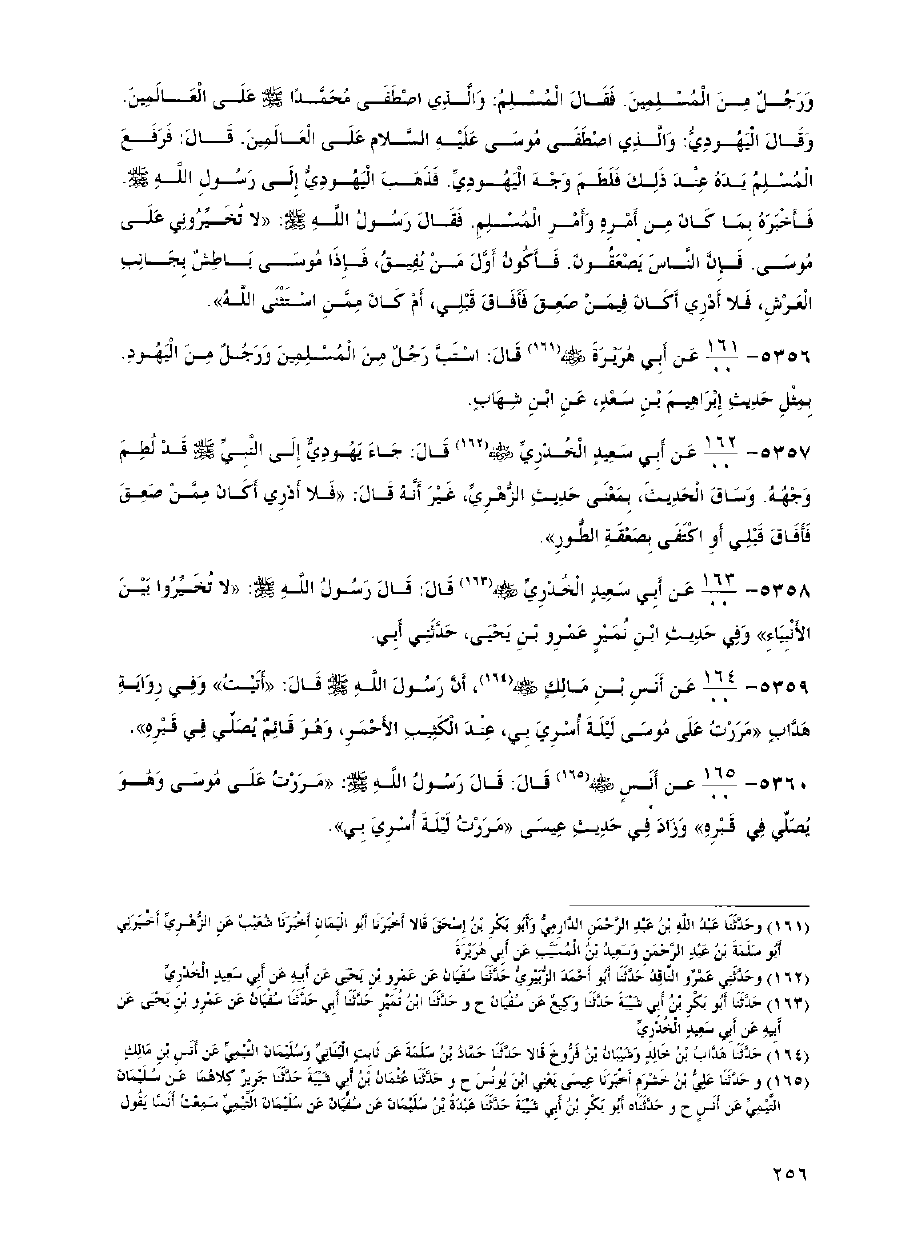 وَرَجُلٌ مِنَ الْمُسْلِمِينَ. فَقَالَ الْمُسْلِمُ: وَالَّذِي اصْطَفَى مُحَمَّدًا ﷺ عَلَى الْعَالَمِينَ.
وَقَالَ الْيَهُودِيُّ: وَالَّذِي اصْطَفَى مُوسَى عَلَيْهِ السَّلام عَلَى الْعَالَمِينَ. قَالَ: فَرَفَعَ
الْمُسْلِمُ يَدَهُ عِنْدَ ذَلِكَ فَلَطَمَ وَجْهَ الْيَهُودِيِّ. فَذَهَبَ الْيَهُودِيُّ إِلَى رَسُولِ اللَّهِ ﷺ.
فَأَخْبَرَهُ بِمَا كَانَ مِن أَمْرِهِ وَأَمْرِ الْمُسْلِمِ. فَقَالَ رَسُولُ اللَّهِ ﷺ: «لا تُخَيِّرُونِي عَلَى
مُوسَى. فَإِنَّ النَّاسَ يَصْعَقُونَ. فَأَكُونُ أَوَّلَ مَنْ يُفِيقُ، فَإِذَا مُوسَى بَاطِشٌ بِجَانِبِ
الْعَرْشِ، فَلا أَدْرِي أَكَانَ فِيمَنْ صَعِقَ فَأَفَاقَ قَبْلِي، أَمْ كَانَ مِمَّنِ اسْتَثْنَى اللَّهُ».
٥٣٥٦- ١٦١ عَن أَبِي هُرَيْرَةَ ﷺ(١٦١) قَالَ: اسْتَبَّ رَجُلٌ مِنَ الْمُسْلِمِينَ وَرَجُلٌ مِنَ الْيَهُودِ.
بِمِثْلِ حَدِيثِ إِبْرَاهِيمَ بْنِ سَعْدٍ، عَنِ ابْنِ شِهَابٍ.
٥٣٥٧- ١٦٢ عَن أَبِي سَعِيدٍ الْخُدْرِيِّ (١٦٢) قَالَ: جَاءَ يَهُودِيٌّ إِلَى النَّبِيِّ ﷺ قَدْ لُطِمَ
وَجْهُهُ. وَسَاقَ الْحَدِيثَ، بِمَعْنَى حَدِيثِ الزُّهْرِيِّ، غَيْرَ أَنَّهُ قَالَ: «فَلا أَدْرِي أَكَانَ مِمَّنْ صَعِقَ
فَأَفَاقَ قَبْلِي أَو اكْتَفَى بِصَعْقَةِ الطُّورِ».
٥٣٥٨- ١٦٣ عَن أَبِي سَعِيدٍ الْخُدْرِيِّ (١٦٣) قَالَ: قَالَ رَسُولُ اللَّهِ ﷺ: «لا تُخَيِّرُوا بَيْنَ
الأَنْبِيَاءِ» وَفِي حَدِيثِ ابْنِ نُمَيْرٍ عَمْرِو بْنِ يَحْيَى، حَدَّثَنِي أَبِي.
٥٣٥٩- ١٦٤ عَن أَنَسِ بْنِ مَالِكٍ (١٦٤)، أَنَّ رَسُولَ اللَّهِ ﷺ قَالَ: «أَتَيْتُ» وَفِي رِوَايَةِ
هَدَّابٍ «مَرَرْتُ عَلَى مُوسَى لَيْلَةَ أُسْرِيَ بِي، عِنْدَ الْكَثِيبِ الأَحْمَرِ، وَهُوَ قَائِمٌ يُصَلِّي فِي قَبْرِهِ».
٥٣٦٠- ١٦٥ عن أَنَسٍ (١٦٥) قَالَ: قَالَ رَسُولُ اللَّهِ ﷺ: «مَرَرْتُ عَلَى مُوسَى وَهُوَ
يُصَلِّي فِي قَبْرِهِ» وَزَادَ فِي حَدِيثِ عِيسَى «مَرَرْتُ لَيْلَةَ أُسْرِيَ بِي».
(١٦١) وحَدَّثَنَا عَبْدُ اللَّهِ بْنُ عَبْدِ الرَّحْمَنِ الدَّارِمِيُّ وَأَبُو بَكْرِ بْنُ إِسْحَقَ قَالا أَخْبَرَنَا أَبُو الْيَمَانِ أَخْبَرَنَا شُعَيْبٌ عَنِ الزُّهْرِيِّ أَخْبَرَنِي
أَبُو سَلَمَةَ بْنُ عَبْدِ الرَّحْمَنِ وَسَعِيدُ بْنُ الْمُسَيَّبِ عَن أَبِي هُرَيْرَةَ
(١٦٢) وحَدَّثَنِي عَمْرٌو النَّاقِدُ حَدَّثَنَا أَبُو أَحْمَدَ الزُّبَيْرِيُّ حَدَّثَنَا سُفْيَانُ عَن عَمْرِو بْنِ يَحْيَى عَن أَبِيهِ عَن أَبِي سَعِيدٍ الْخُدْرِيِّ
(١٦٣) حَدَّثَنَا أَبُو بَكْرِ بْنُ أَبِي شَيْبَةَ حَدَّثَنَا وَكِيعٌ عَن سُفْيَانَ ح و حَدَّثَنَا ابْنُ نُمَيْرٍ حَدَّثَنَا أَبِي حَدَّثَنَا سُفْيَانُ عَن عَمْرِو بْنِ يَحْيَى عَن
أَبِيهِ عَن أَبِي سَعِيدٍ الْخُدْرِيِّ
(١٦٤) حَدَّثَنَا هَدَّابُ بْنُ خَالِدٍ وَشَيْبَانُ بْنُ فَرُّوخَ قَالا حَدَّثَنَا حَمَّادُ بْنُ سَلَمَةَ عَن ثَابِتٍ الْبُنَانِيِّ وَسُلَيْمَانَ التَّيْمِيِّ عَن أَنَسِ بْنِ مَالِكٍ
(١٦٥) و حَدَّثَنَا عَلِيُّ بْنُ خَشْرَمٍ أَخْبَرَنَا عِيسَى يَعْنِي ابْنَ يُونُسَ ح و حَدَّثَنَا عُثْمَانُ بْنُ أَبِي شَيْبَةَ حَدَّثَنَا جَرِيرٌ كِلاهُمَا عَن سُلَيْمَانَ
التَّيْمِيِّ عَن أَنَسٍ ح و حَدَّثَنَاه أَبُو بَكْرِ بْنُ أَبِي شَيْبَةَ حَدَّثَنَا عَبْدَةُ بْنُ سُلَيْمَانَ عَن سُفْيَانَ عَن سُلَيْمَانَ التَّيْمِيِّ سَمِعْتُ أَنَسًا يَقُولُ
٢٥٦